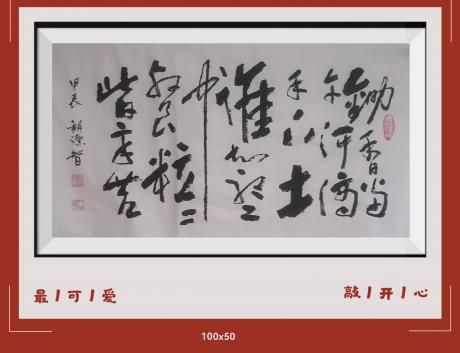 锄禾日当
午汗滴
禾下土
谁知盘
中
餐粒々
皆辛苦
甲辰
最 可 爱
敲 开 心
100x50